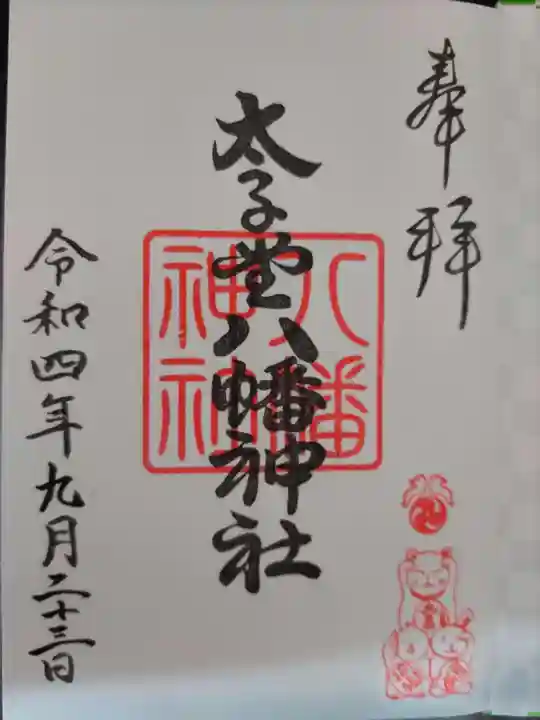 奉拝
太子堂八幡神社
八幡
神社
令和四年九月二十三日